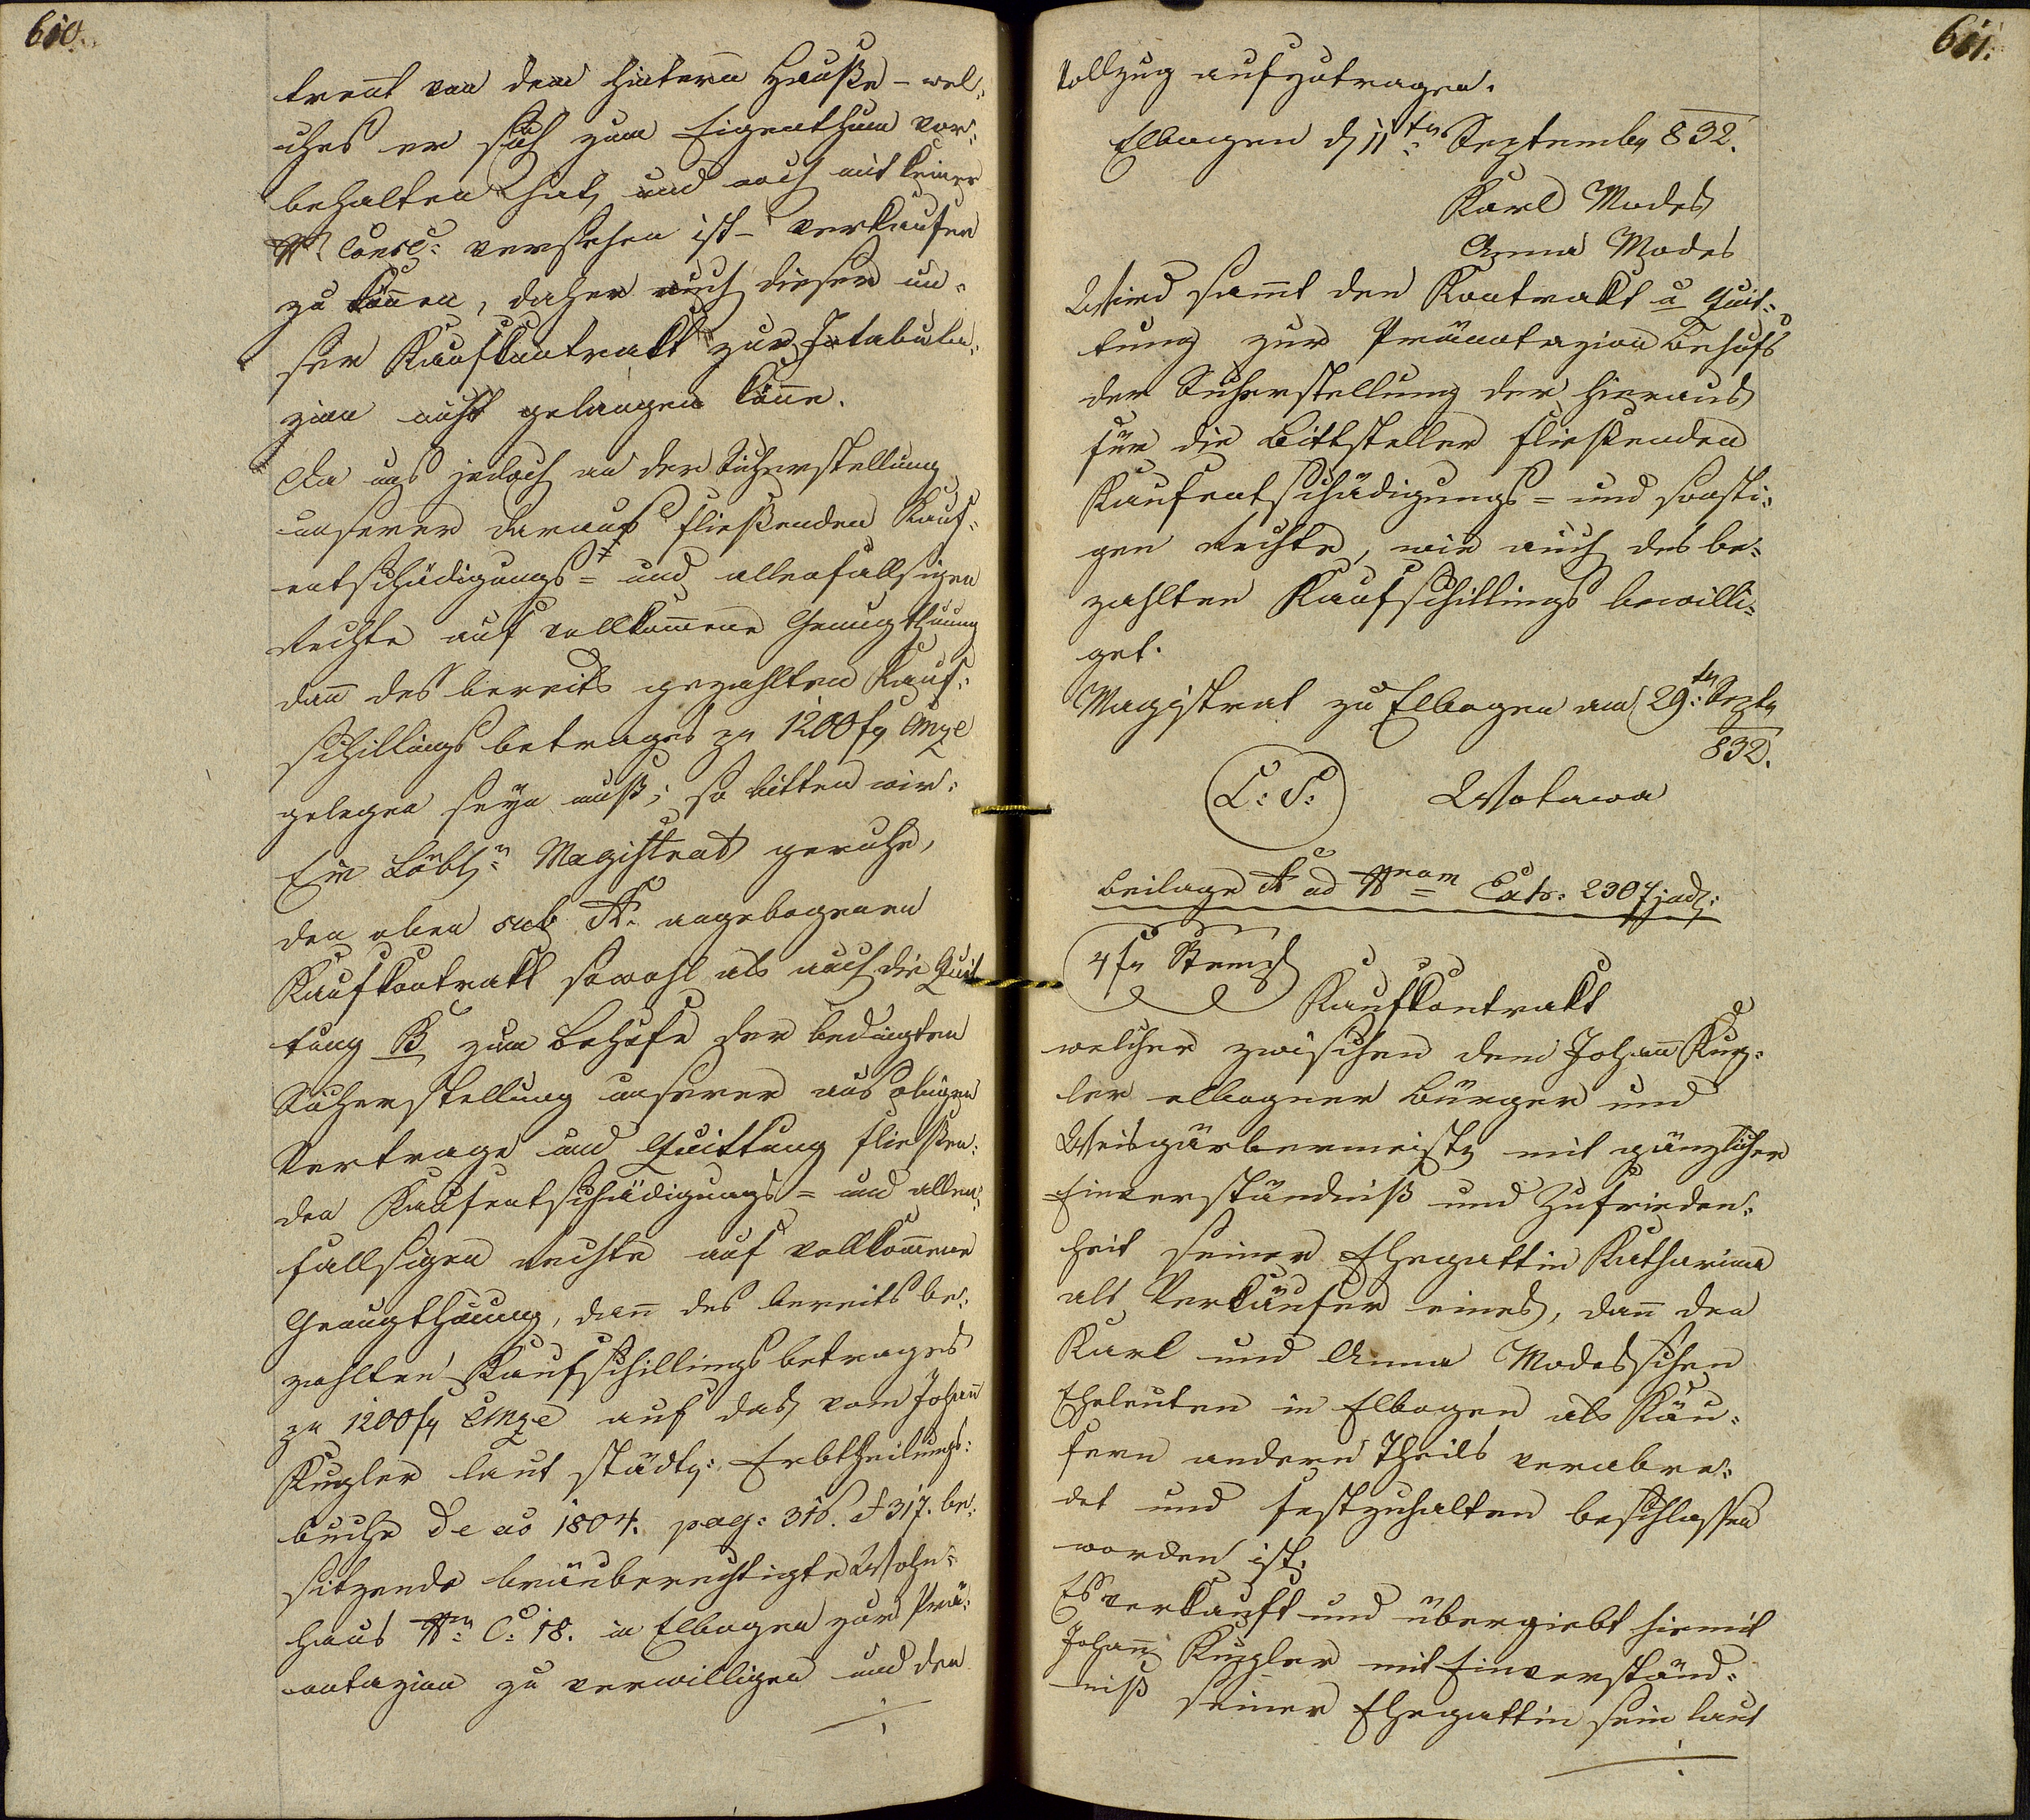 610.
trent von dem hintern Hauße – wel-
ches er sich zum Eigenthum vor-
behalten hat, und noch mit keiner
Nr Consc: versehen ist – verkaufen
zu können, daher auch dieser un-
ser Kaufkontrakt zur Intabula-
zion nicht gelangen könne.
Da uns jedoch an der Sicherstellung
unserer daraus fließenden Kauf-
entschädigungs- und allenfallsigen
Rechte auf vollkommene Genugthuung
dann des bereits gezahlten Kauf-
schillingsbetrages zu 1200 fr CMze
gelegen seyn muß; so bitten wir:
Ein Löbl: Magistrat geruhe,
den oben sub A. angebogenen
Kaufkontrakt sowohl als auch die Quit
tung B zum Behufe der bedingten
Sicherstellung unserer aus obigen
Vertrage und Quittung fließen-
den Kaufentschädigungs- und allen-
fallsigen Rechte auf vollkommene
Genugthuung, dann des bereits be-
zahlten Kaufschillingsbetrages
zu 1200 fr CMze auf das vom Johann
Kugler laut städt: Erbtheilungs-
buche de ao 1804. pag: 316. et 317. be-
sitzende bräuberechtigte Wohn-
haus Nr: C: 18. in Elbogen zur Prä-
notazion zu verwilligen und den
./.
611.
Vollzug aufzutragen.
Elbogen d 11ten September 832.
Karl Modes
Anna Modes
Wird sammt den Kontrakt u Quit-
tung zur Pränotazion behufs
der Sicherstellung der hieraus
für die Bittsteller fließenden
Kaufentschädigungs- und sonsti-
gen Rechte, wie auch des be-
zahlten Kaufschillings bewilli-
get.
Magistrat zu Elbogen am 29ten Septr
832.
L: S: Wotawa
Beilage A ad Nram Exh: 2307 jud:
4 fr Stempl
Kaufkontrakt
welcher zwischen dem Johann Kug-
ler elbogner Bürger und
Weisgärbermeister mit gänzlicher
Einverständniß und Zufrieden-
heit seiner Ehegattin Katharina
als Verkäufer eines, dann den
Karl und Anna Modesschen
Eheleuten in Elbogen als Käu-
fern andern Theils verabre-
det und festzuhalten beschlossen
worden ist.
Es verkauft und übergiebt hiemit
Johann Kugler mit Einverständ-
niß seiner Ehegattin sein laut
./.